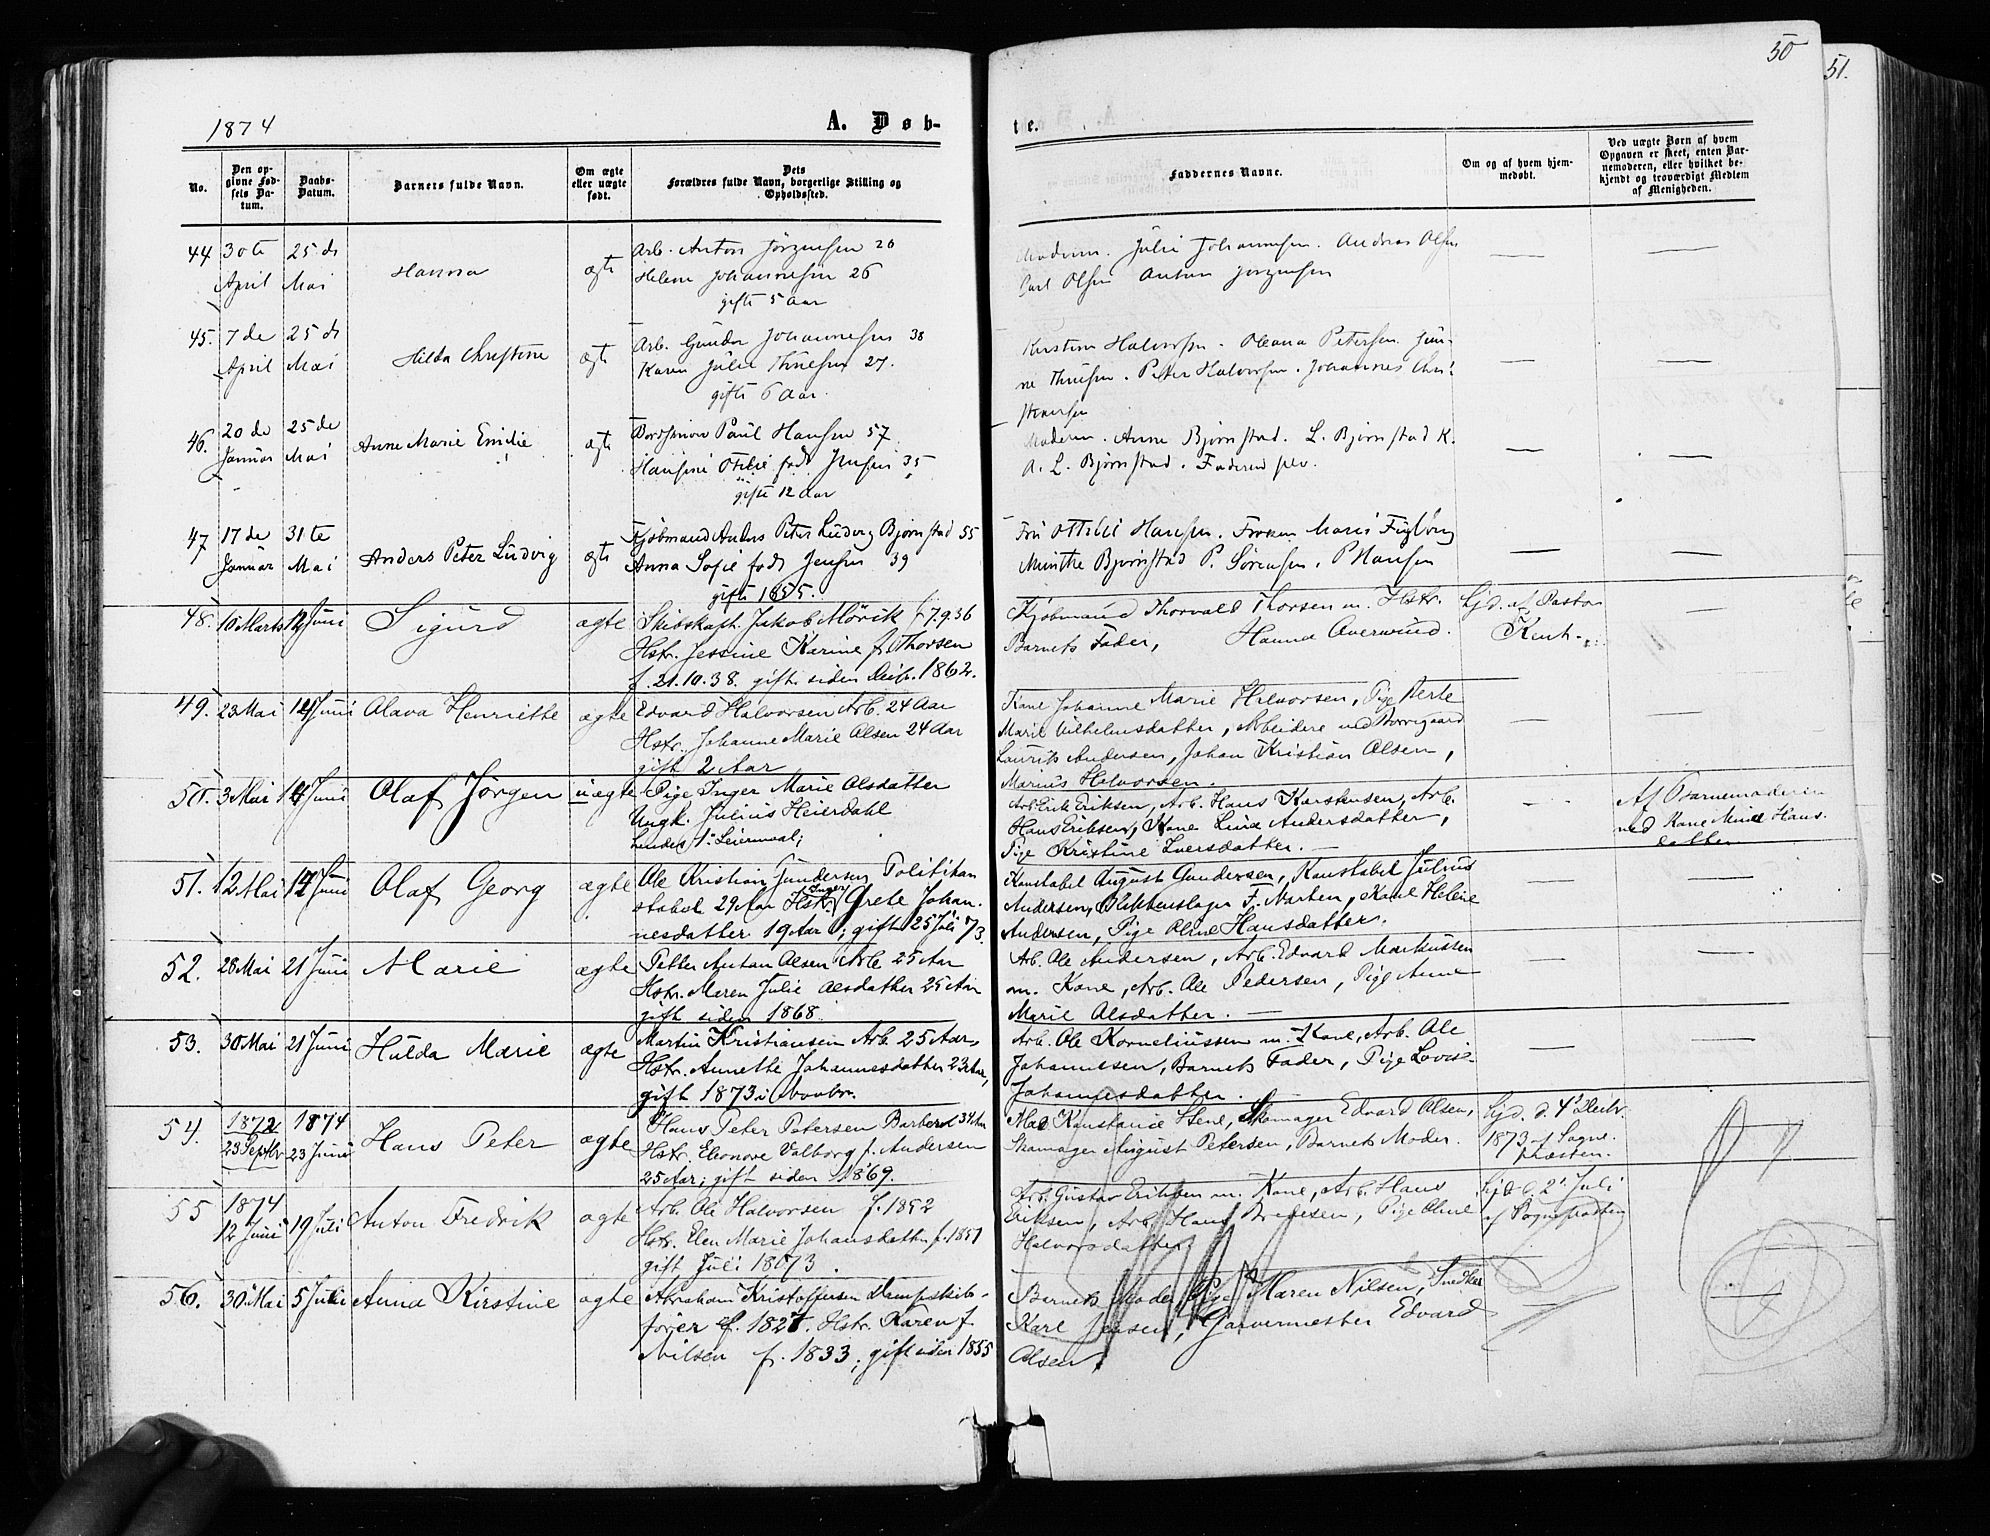 50
51.
1874
A. Døb-
te.
No.
Den op-
givne Fød-
sels Da-
tum.
Daabs-
Datum.
Barnets fulde Navn.
Om ægte
eller uægte
født.
Dets
Forældres fulde Navn, borgerlige Stilling og
Opholdssted.
Faddernes Navne.
Om og af hvem hjem-
medøbt.
Ved uægte Børn af hvem
Opgaven er skeet, enten Bar-
nemoderen, eller hvilket be-
kjendt og troværdigt Medlem
af Menigheden.
44 30te April 25de Mai Hanna ægte
Arb. Anton Jörgensen 26
Helene Johannesen 26
gifte 5 Aar
Moderen. Julie Johannesen. Andreas Olsen
Carl Olsen Anton Jörgensen
45. 7de April 25de Mai Hilda Christine ægte
Arb. Johannesen 38
Karen Julie 27.
gifte 6 Aar.
Halvorsen. Oleana Petersen.
Peter Halvorsen. Johannes Chri-
stensen
46. 20de Januar 25de Mai Anne Marie Emilie ægte
Paul Hansen 57
Otilie født Jensen 35
gifte 12 Aar
Moderen. Anne Bjørnstad. L. Bjørnstad K.
A. L. Bjørnstad. Faderen selv.
47 17de Januar 31te Mai Anders Peter Ludvig ægte
Kjøbmand Anders Peter Ludvig Bjørnstad 55
Anna Sofie født Jensen 39
gifte 1855.
Fru Ottilie Hansen. Frøken Marie
Münthe Bjørnstad P. Sørensen. P Hansen
48. 10 Marts Juni Sigurd ægte
Skibskapt. Jakob Mörik f. 7.9.36
Hstr. Jessine Karine f. Thorsen
f. 21.10.38. gift siden 1862.
Kjøbmand Thorvald Thorsen m. Hstr.
Barnets Fader, Hanna
hjd. af Pastor
49. 23 Mai 14 Juni Olava Henriette ægte
Edvard Halvorsen Arb. 24 Aar
Hstr. Johanne Marie Olsen 24 Aar
gift 2 Aar
Kone Johanne Marie Halvorsen, Pige
Marie Vilhelmsdatter, Arbeidere ved Borregaard
Laurits Andersen, Johan Kristian Olsen,
Marius Halvorsen.
50. 3 Mai 14 Juni Olaf Jørgen uægte
Pige Inger Marie Olsdatter
Ungk. Julius Heierdahl
Leiermaal;
Arb. Erik Eriksen, Arb. Hans Karstensen, Arb.
Hans Eriksen, Kone Lina Andersdatter,
Pige Kristine Iversdatter. —
Af Barnemoderen
ved Kone Mina Hans-
datter
51. 12 Mai 14 Juni Olaf Georg ægte
Ole Kristian Gundersen Politikon-
stabel 29 Aar Hstr. Inger Grete Johan-
nesdatter 19 Aar; gift 25 Juli 73.
Konstabel August Gundersen, Konstabel Julius
Andersen, Blikkenslager F. Morten, Kone Helene
Andersen, Pige Oline Hansdatter.
52. 28 Mai 21 Juni Marie ægte
Petter Anton Olsen Arb. 25 Aar
Hstr. Maren Julie Olsdatter 25 Aar
gift siden 1868.
Arb. Ole Andersen, Arb. Edvard Markussen
m. Kone, Arb. Ole Pedersen, Pige Anne
Marie Olsdatter. —
53. 30 Mai 21 Juni Hulda Marie ægte
Martin Kristiansen Arb. 25 Aar
Hstr. Annette Johannesdatter 23 Aar,
gift 1873 i Novbr.
Arb. Ole Korneliussen m. Kone, Arb. Ole
Johannesen, Barnets Fader, Pige Lovise
Johannesdatter.
54. 1872 23 Septbr 1874 23 Juni Hans Peter ægte
Hans Peter Petersen Barberer 34 Aar
Hstr. Eleonore Valborg f. Andersen
25 Aar; gift siden 1869.
Mad Konstance Stene, Skomager Edvard Olsen,
Skomager August Petersen, Barnets Moder.
hjd. d. 4de Decbr.
1873 af Sogne-
præsten.
55 1874 12 Juni 19 Juli Anton Fredrik ægte
Arb. Ole Halvorsen f. 1852
Hstr. Elen Marie Johansdatter f. 1851
gift Juli 1873.
Arb. Gustav Eriksen m. Kone, Arb. Hans
Eriksen, Arb. Hans Pige Oline
Halvorsdatter.
hjd. 2 Juli
af Sognepræsten
56. 30 Mai 5 Juli Anna Kirstine ægte
Abraham Kristoffersen Dampskibs-
fører f. 1827. Hstr. Karen f.
Nilsen f. 1833; gift siden 1855
Barnets Moder, Pige Maren Nilsen, Snedker
Karl Jensen, Garvermester Edvard
Olsen.